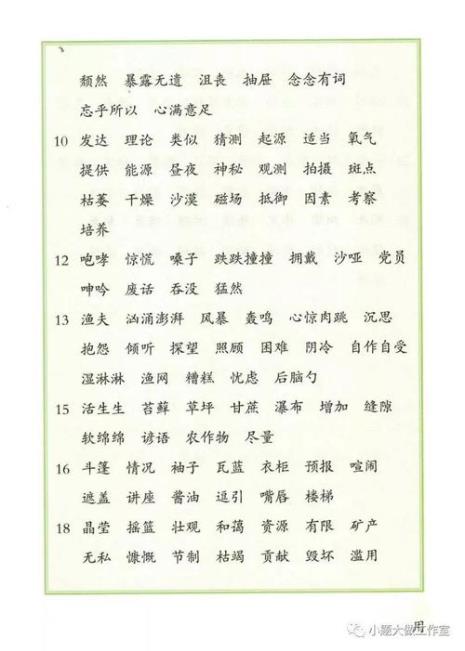 颓然 暴露无遗 沮丧 抽屉 念念有词
忘乎所以 心满意足
10 发达 理论 类似 猜测 起源 适当 氧气
提供 能源 昼夜 神秘 观测 拍摄 斑点
枯萎 干燥 沙漠 磁场 抵御 因素 考察
培养
12 咆哮 惊慌 嗓子 跌跌撞撞 拥戴 沙哑 党员
呻吟 废话 吞没 猛然
13 渔夫 汹涌澎湃 风暴 轰鸣 心惊肉跳 沉思
抱怨 倾听 探望 照顾 困难 阴冷 自作自受
湿淋淋 渔网 糟糕 忧虑 后脑勺
15 活生生 苔藓 草坪 甘蔗 瀑布 增加 缝隙
软绵绵 谚语 农作物 尽量
16 斗篷 情况 袖子 瓦蓝 衣柜 预报 喧闹
遮盖 讲座 酱油 逗引 嘴唇 楼梯
18 晶莹 摇篮 壮观 和蔼 资源 有限 矿产
无私 慷慨 节制 枯竭 贡献 毁坏 滥用
小题大做工作室